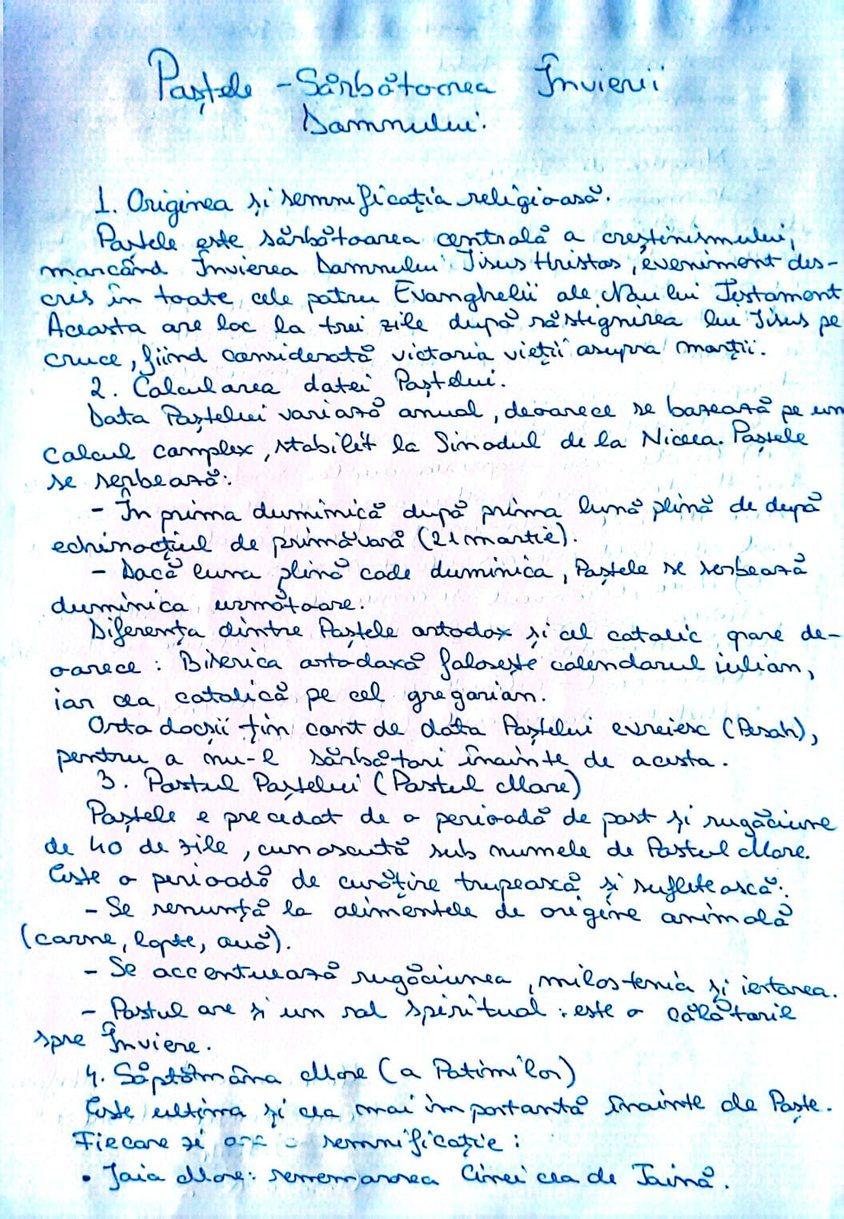 Paștele - Sărbătoarea Învierii
Domnului.
1. Originea și semnificația religioasă.
Paștele este sărbătoarea centrală a creștinismului,
marcând Învierea Domnului Iisus Hristos, eveniment des-
cris în toate cele patru Evanghelii ale Noului Testament
Aceasta are loc la trei zile după răstignirea lui Iisus pe
cruce, fiind considerată victoria vieții asupra morții.
2. Calcularea datei Paștelui.
Data Paștelui variază anual, deoarece se bazează pe un
calcul complex, stabilit la Sinodul de la Niceea. Paștele
se serbează:
- În prima duminică după prima lună plină de după
echinocțiul de primăvară (21 martie).
- Dacă luna plină cade duminica, Paștele se serbează
duminica următoare.
Diferența dintre Paștele ortodox și cel catolic apare de-
oarece: Biserica ortodoxă folosește calendarul iulian,
iar cea catolică pe cel gregorian.
Ortodocșii țin cont de data Paștelui evreiesc (Pesah),
pentru a nu-l sărbători înainte de acesta.
3. Postul Paștelui (Postul Mare)
Paștele e precedat de o perioadă de post și rugăciune
de 40 de zile, cunoscută sub numele de Postul Mare.
Este o perioadă de curățire trupească și sufletească:
- Se renunță la alimentele de origine animală
(carne, lapte, ouă).
- Se accentuează rugăciunea, milostenia și iertarea.
- Postul are și un rol spiritual: este o călătorie
spre Înviere.
4. Săptămâna Mare (a Patimilor)
Este ultima și cea mai importantă înainte de Paște.
Fiecare zi are o semnificație:
• Joia Mare: rememorarea Cinei cea de Taină.